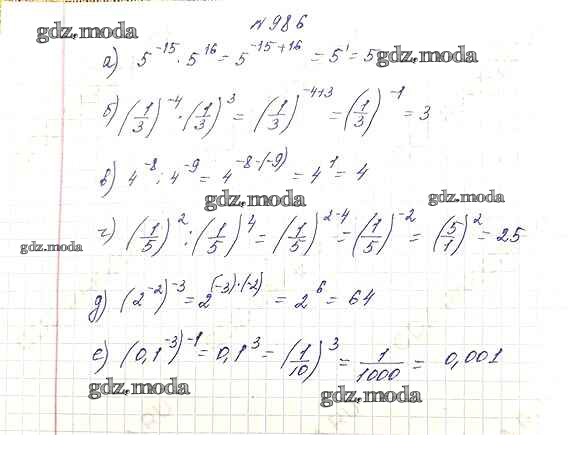 №986
gdz.moda
а) 5^-15 · 5^16 = 5^-15+16 = 5^1 = 5
gdz.moda
б) (1/3)^-4 · (1/3)^3 = (1/3)^-4+3 = (1/3)^-1 = 3
в) 4^-8 : 4^-9 = 4^-8-(-9) = 4^1 = 4
gdz.moda
gdz.moda
г) (1/5)^2 : (1/5)^4 = (1/5)^2-4 = (1/5)^-2 = (5/1)^2 = 25
gdz.moda
д) (2^-2)^-3 = 2^(-3)·(-2) = 2^6 = 64
е) (0,1^-3)^-1 = 0,1^3 = (1/10)^3 = 1/1000 = 0,001
gdz.moda
gdz.moda